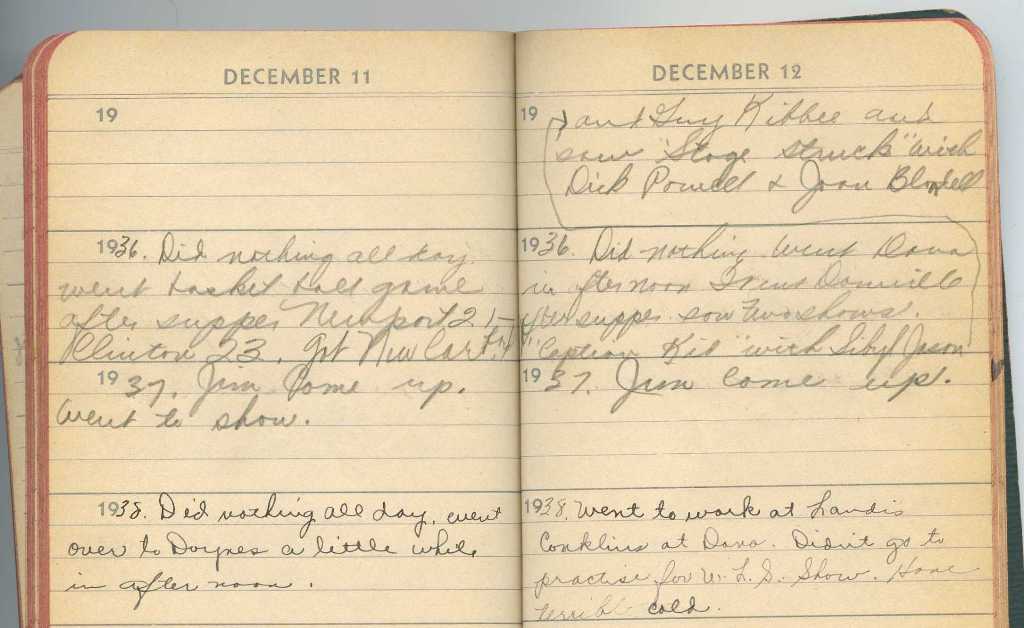 DECEMBER 11
19
1936. Did nothing all day.
went basket ball game
after supper Newport 21-
Clinton 23. Got New Car
1937. Jim Come up.
Went to show.
1938. Did nothing all day, went
over to Doynes a little while
in after noon.
DECEMBER 12
19 and Guy Kibbee and
saw "Stage Struck" with
Dick Powell & Joan Blondell
1936. Did nothing Went Dana
in after noon Danville
after supper saw two shows.
"Captain Kid" with Sibyl Jason
1937. Jim Come up.
1938. Went to work at Landis
Conklins at Dana. Didn't go to
practise for W.L.S. Show. Have
terrible cold.